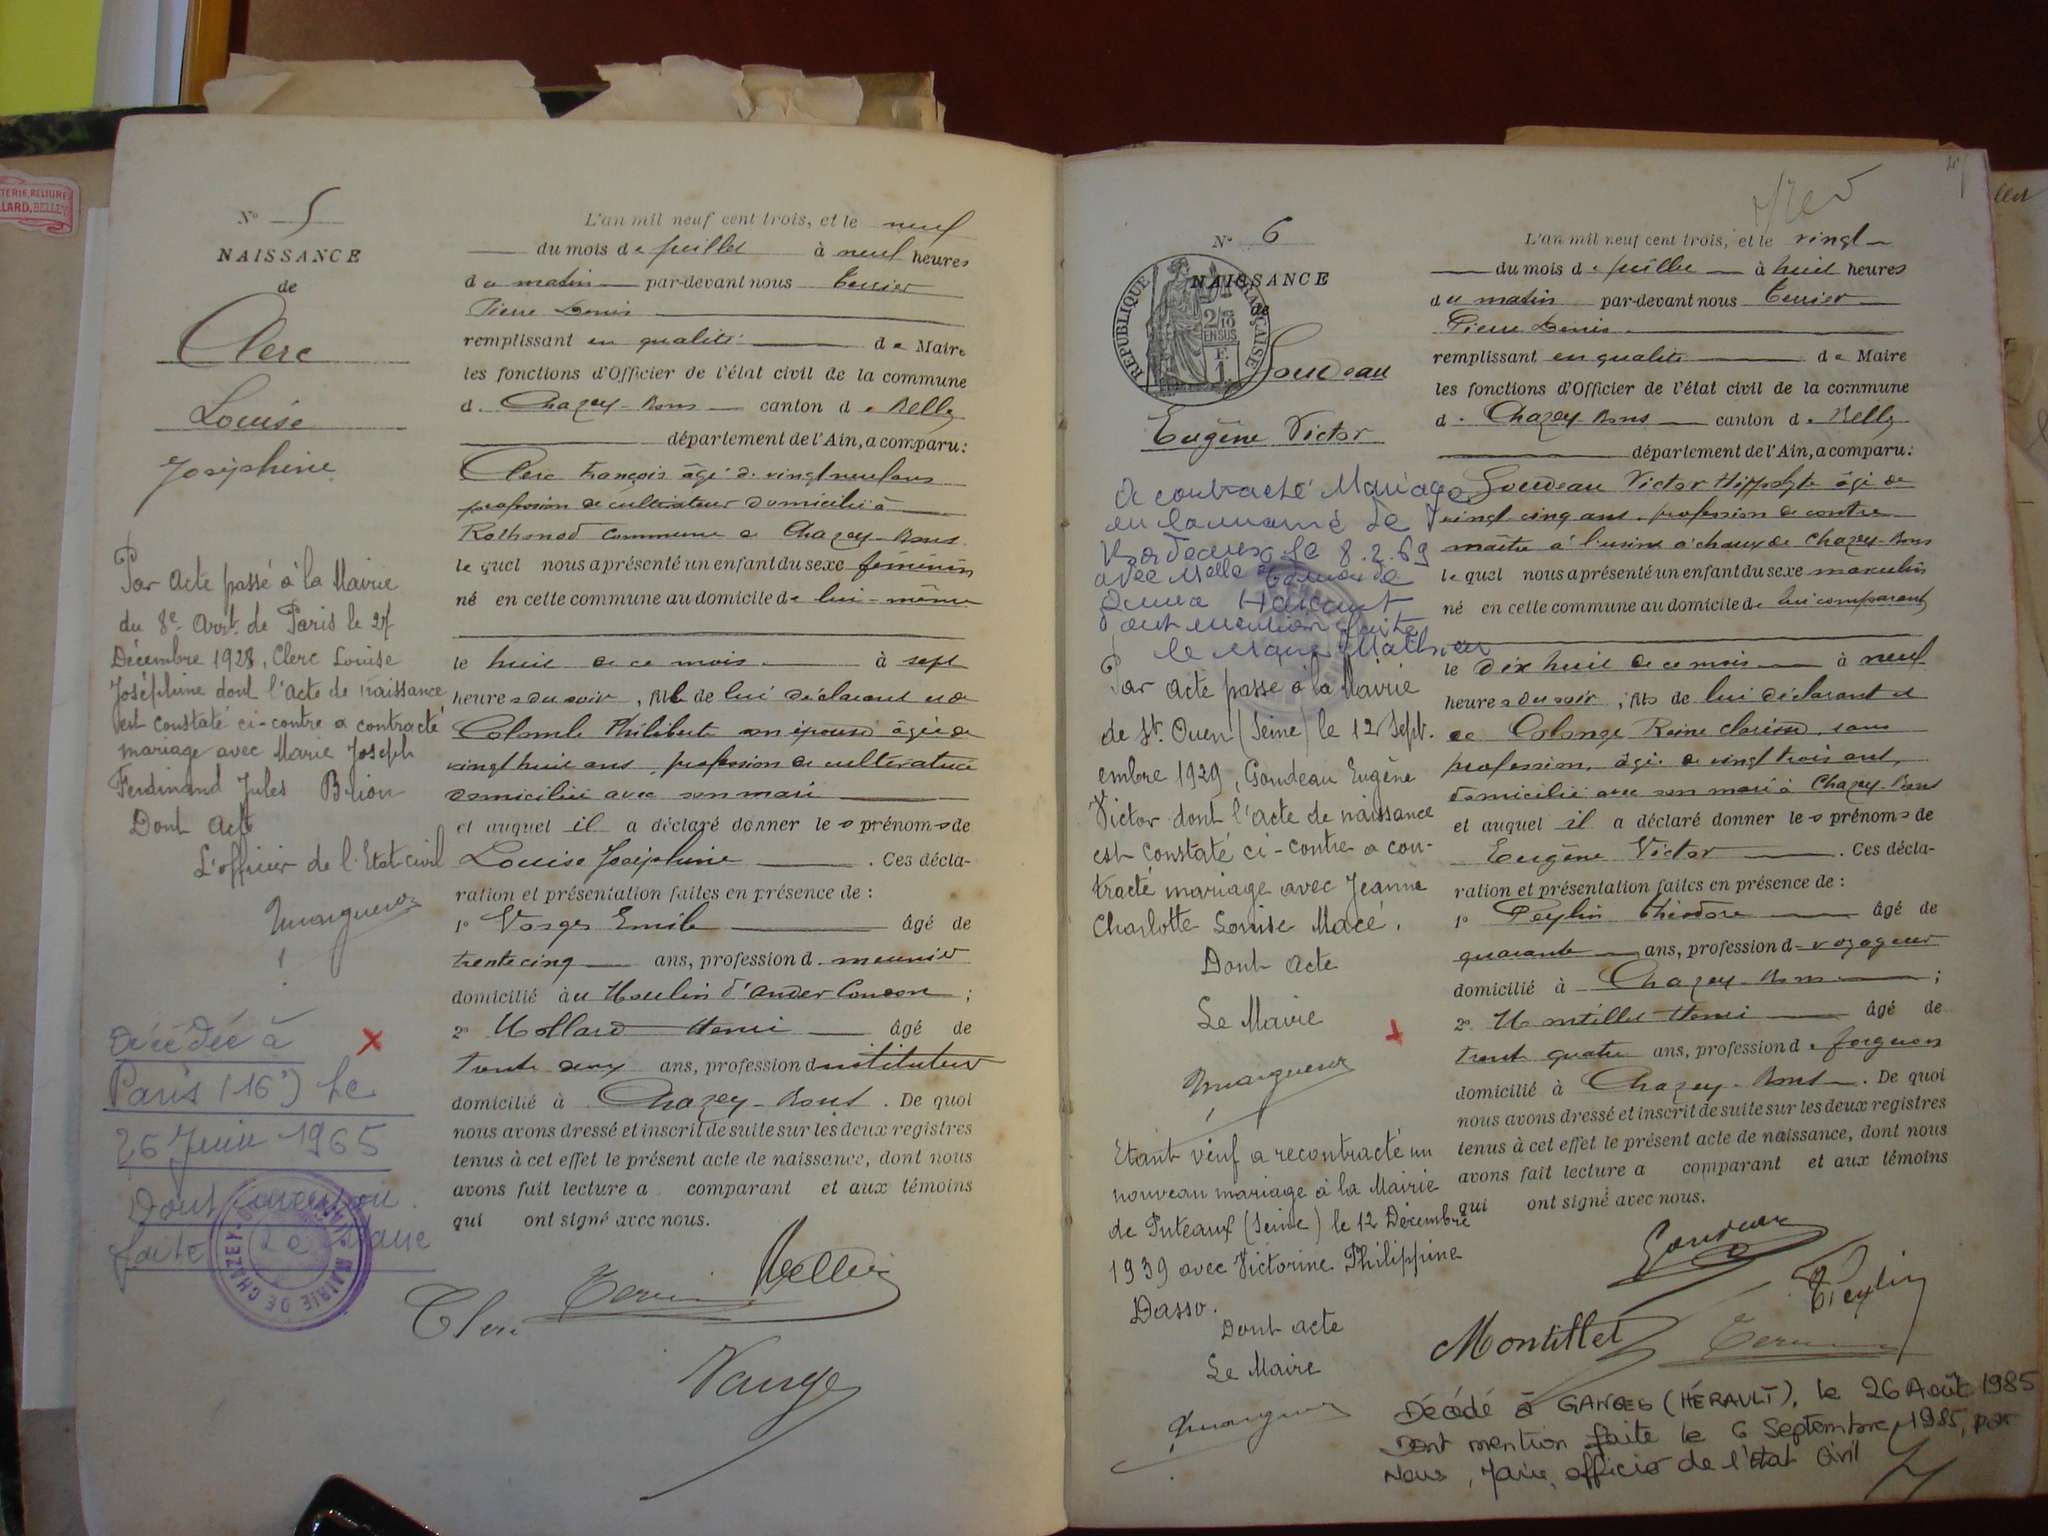 N° 5
NAISSANCE
de
Clerc
Louise
Joséphine
Par acte passé à la Mairie
du 8e Arrt. de Paris le 27
Décembre 1928, Clerc Louise
Joséphine dont l'acte de naissance
est constaté ci-contre a contracté
mariage avec Marie Joseph
Ferdinand Jules Blion
Dont Acte
L'officier de l'Etat-civil
Décédée à
Paris (16e) le
26 Juin 1965
Dont mention
faite Le Maire
MAIRIE DE CHAZEY
L'an mil neuf cent trois, et le neuf
du mois de juillet à neuf heures
du matin par-devant nous
Pierre Denis
remplissant en qualité de Maire
les fonctions d'Officier de l'état civil de la commune
d. Chazey-Bons canton de Belley
département de l'Ain, a comparu:
Clerc François âgé de vingt neuf ans
profession de cultivateur domicilié à
Rothonod commune de Chazey-Bons
lequel nous a présenté un enfant du sexe féminin
né en cette commune au domicile de lui-même
le huit de ce mois à sept
heures du soir, fille de lui déclarant et de
Colomb Philiberte son épouse âgée de
vingt huit ans, profession de cultivatrice
domiciliée avec son mari
et auquel il a déclaré donner les prénoms de
Louise Joséphine . Ces décla-
ration et présentation faites en présence de :
1° Emile âgé de
trente cinq ans, profession d. meunier
domicilié au Moulin d'Ander
2° Mollard Henri âgé de
trente deux ans, profession d'instituteur
domicilié à Chazey-Bons . De quoi
nous avons dressé et inscrit de suite sur les deux registres
tenus à cet effet le présent acte de naissance, dont nous
avons fait lecture a comparant et aux témoins
qui ont signé avec nous.
Clerc
N° 6
NAISSANCE
de
RÉPUBLIQUE FRANÇAISE
2/10 EN SUS
F. 1
Goudeau
Eugène Victor
A contracté Mariage
en la mairie de
Bordeaux le 8.2.69
avec Melle
dont mention faite
le Maire
Par acte passé à la Mairie
de St. Ouen (Seine) le 12 Sept.
embre 1929, Goudeau Eugène
Victor dont l'acte de naissance
est constaté ci-contre a con-
tracté mariage avec Jeanne
Charlotte Louise Macé.
Dont acte
Le Maire
Etant veuf a recontracté un
nouveau mariage à la Mairie
de Puteaux (Seine) le 12 Décembre
1939 avec Victorine Philippine
Dasso.
Dont acte
Le Maire
L'an mil neuf cent trois, et le vingt
du mois de juillet à huit heures
du matin par-devant nous
Pierre Denis
remplissant en qualité de Maire
les fonctions d'Officier de l'état civil de la commune
d. Chazey Bons canton de Belley
département de l'Ain, a comparu:
Goudeau Victor Hippolyte âgé de
vingt cinq ans, profession de contre
maître à l'usine à chaux de Chazey-Bons
lequel nous a présenté un enfant du sexe masculin
né en cette commune au domicile de lui comparant
le dix huit de ce mois à neuf
heures du soir, fils de lui déclarant et
de Colange Reine sans
profession, âgée de vingt trois ans,
domiciliée avec son mari à Chazey-Bons
et auquel il a déclaré donner les prénoms de
Eugène Victor . Ces décla-
ration et présentation faites en présence de :
1° Peylin Théodore âgé de
quarante ans, profession d. voyageur
domicilié à Chazey-Bons ;
2° Montillet Henri âgé de
trente quatre ans, profession de forgeron
domicilié à Chazey-Bons . De quoi
nous avons dressé et inscrit de suite sur les deux registres
tenus à cet effet le présent acte de naissance, dont nous
avons fait lecture a comparant et aux témoins
qui ont signé avec nous.
Goudeau
Peylin
Montillet
Décédé à GANGES (HÉRAULT), le 26 Août 1985
Dont mention faite le 6 Septembre 1985, par
Nous, Maire, officier de l'état Civil